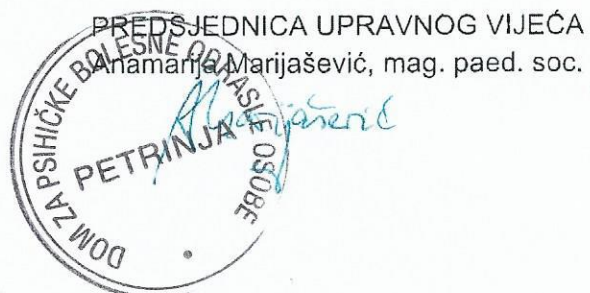 PREDSJEDNICA UPRAVNOG VIJEĆA
Anamarija Marijašević, mag. paed. soc.
AMarijašević
DOM ZA PSIHIČKE BOLESNE ODRASLE OSOBE
PETRINJA